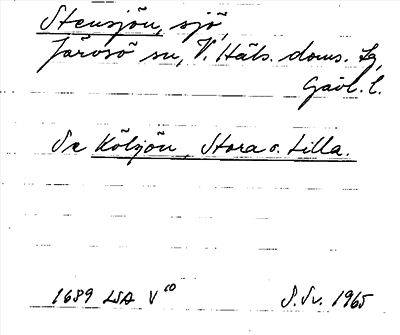 Stensjön, sjö,
Järvsö sn, V. Häls. doms. tg,
Gävl. l.
Se Kölsjön, Stora o. Lilla.
1689 LSA V¹⁰ S.Sv. 1965